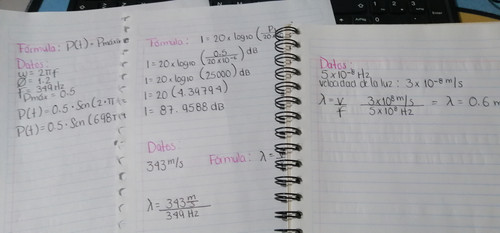 Fórmula: P(t) = Pmáx
Datos:
ω = 2πf
Ø = 1.2
f = 349 Hz
Pmáx = 0.5
P(t) = 0.5 · Sen(2·π
P(t) = 0.5 · Sen(698π
Fórmula: I = 20 x log10 (
I = 20 x log10 (0.5 / 20x10⁻⁶) dB
I = 20 x log10 (25000) dB
I = 20 (4.39794)
I = 87.9588 dB
Datos
343 m/s Fórmula: λ =
λ = 343 m/s / 349 Hz
Datos:
5x10⁻⁸ Hz
velocidad de la luz: 3x10⁻⁸ m/s
λ = v/f 3x10⁸ m/s / 5x10⁸ Hz = λ = 0.6 m